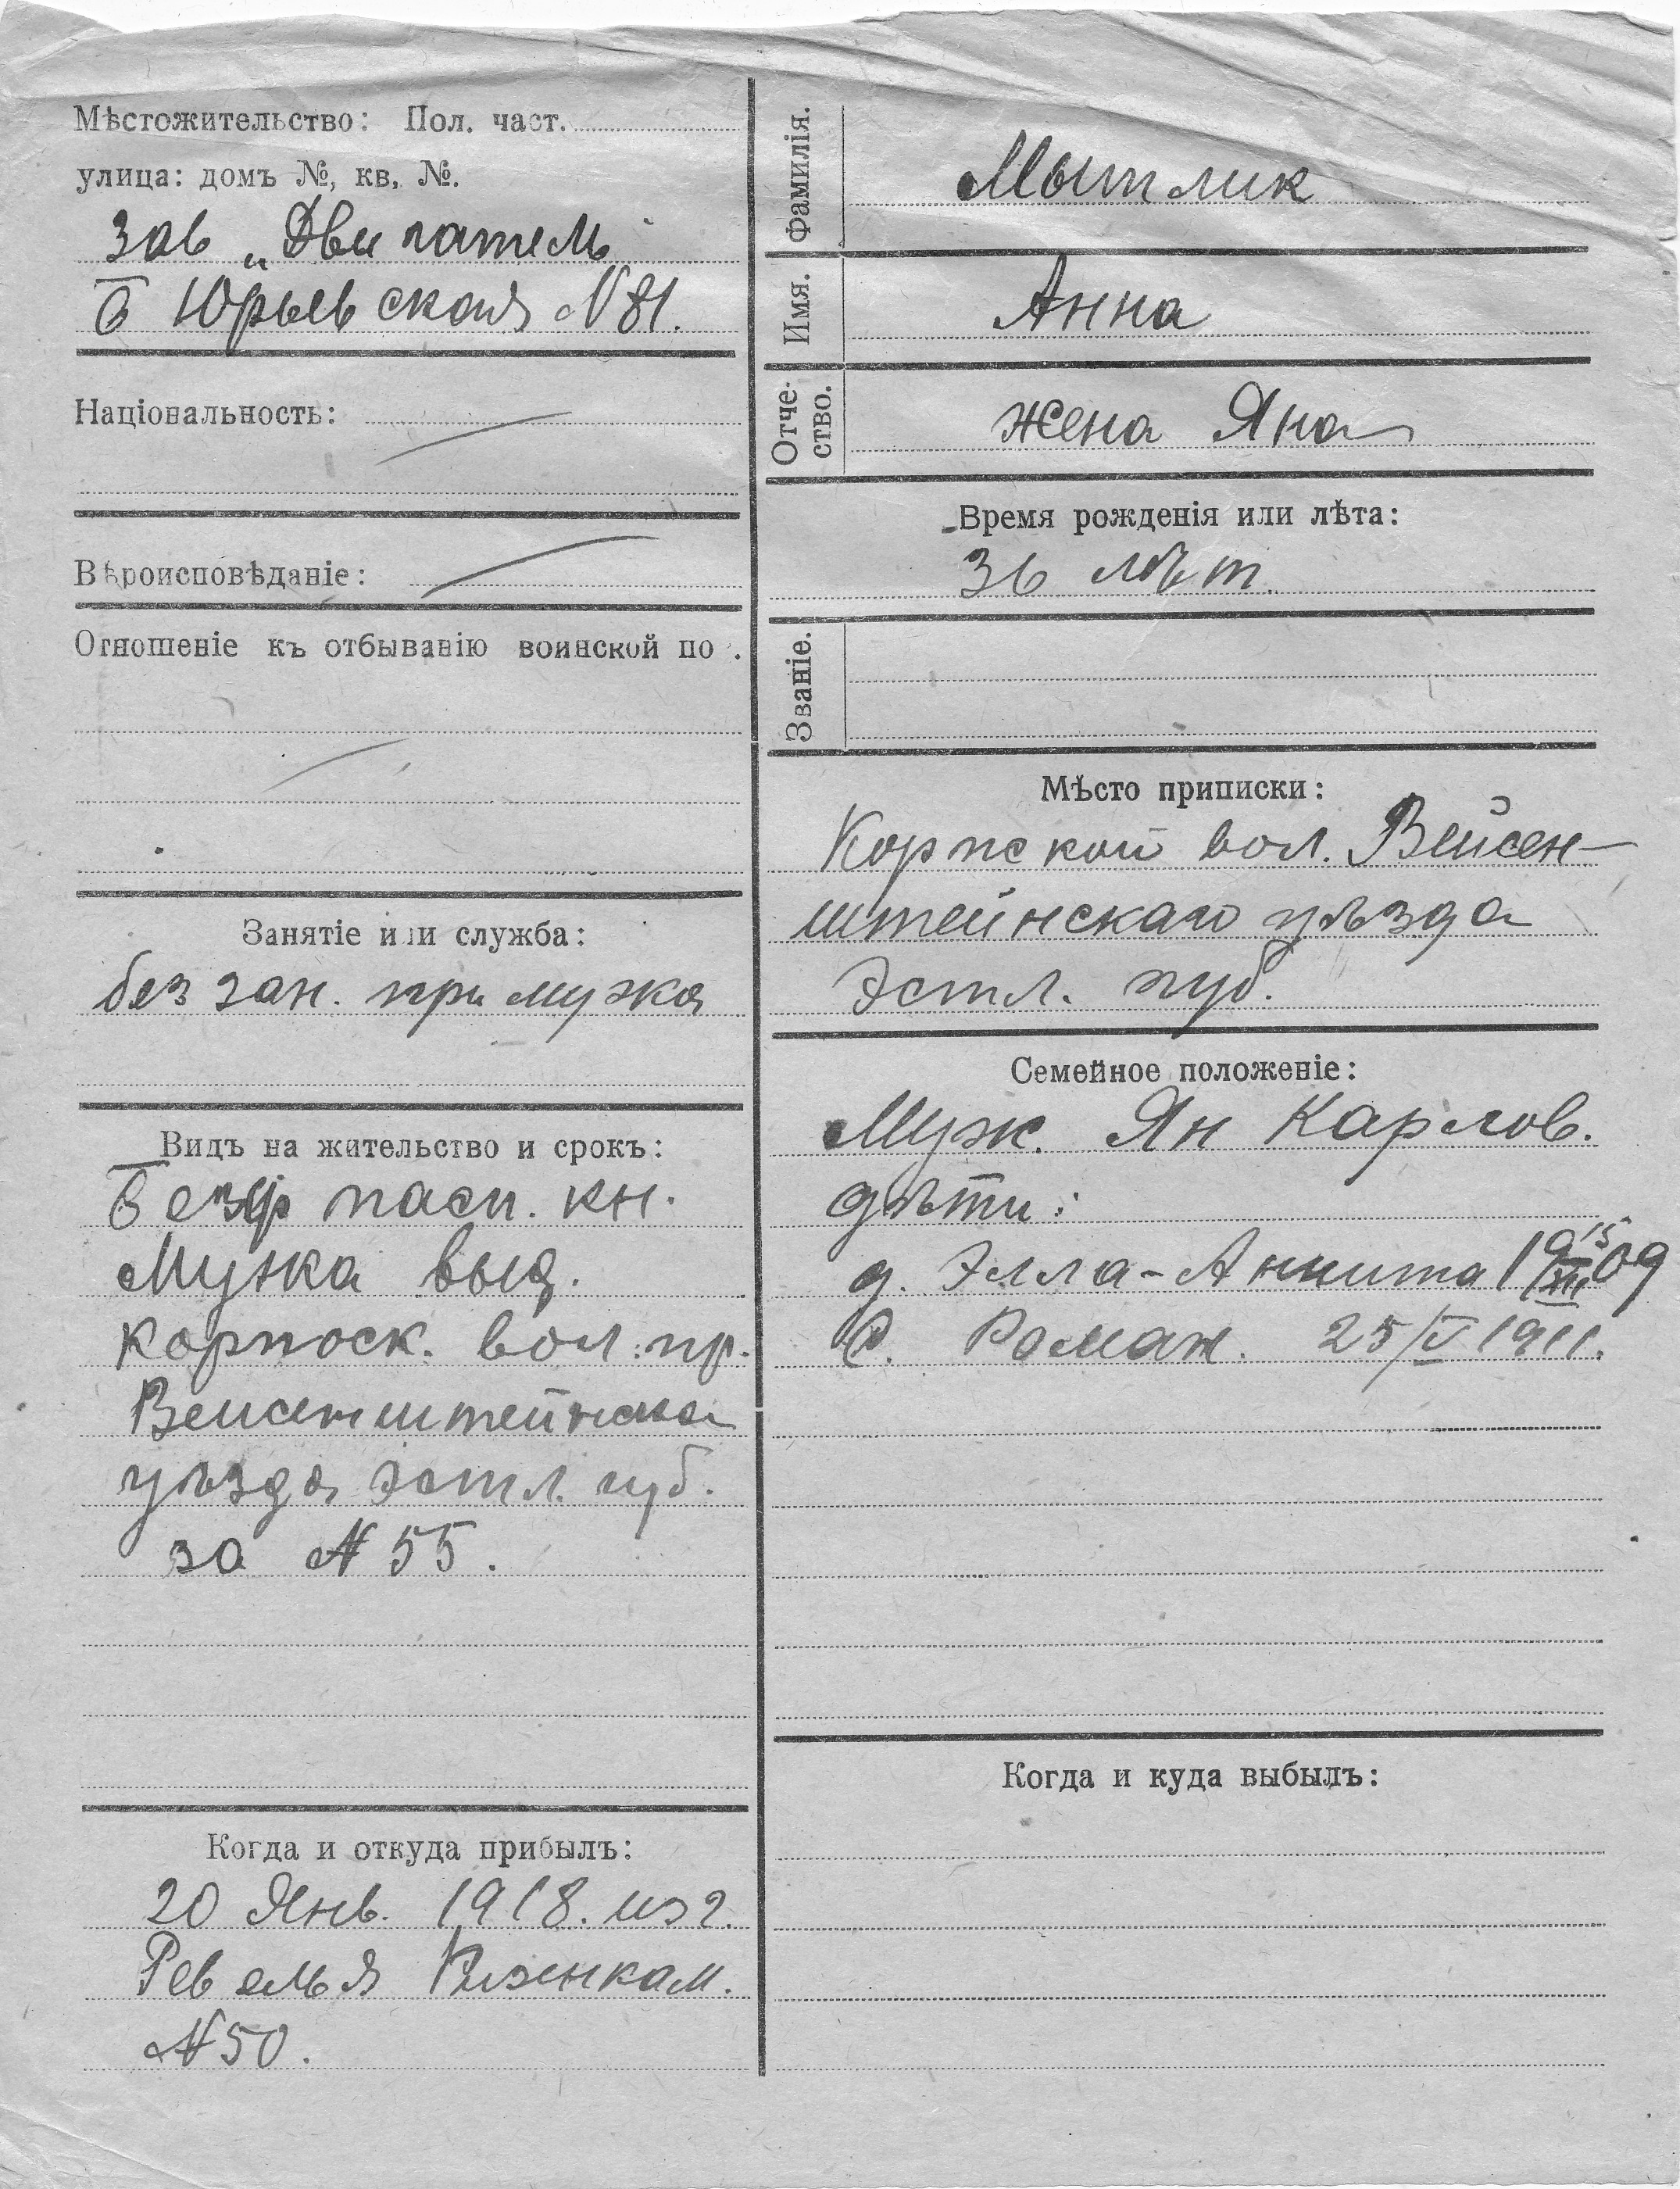 Мѣстожительство: Пол. част.
улица: домъ №, кв, №.
Зав „Двигатель“
Б Юрьевская N 81.
Національность:
Вѣроисповѣданіе:
Отношеніе къ отбыванію воинской по .
Занятіе или служба:
без зан. при мужа
Видъ на жительство и срокъ:
Безср пасп. кн.
Мужа выд.
Корпоск. вол. пр.
Вейсенштейнска
уѣзда Эстл. губ.
за N 55.
Когда и откуда прибылъ:
20 Янв. 1918. из г.
Ревеля
N 50.
Фамилія.
Мытлик
Имя.
Анна
Отче-
ство.
жена Яна
Время рожденія или лѣта:
36 лѣт.
Званіе.
Мѣсто приписки:
Корпской вол. Вейсен-
штейнскаго уѣзда
Эстл. губ.
Семейное положеніе:
Муж. Ян Карлов.
дѣти:
д. Элла-Аннита 19 15/XII 09
с. Роман. 25/V 1911.
Когда и куда выбылъ: